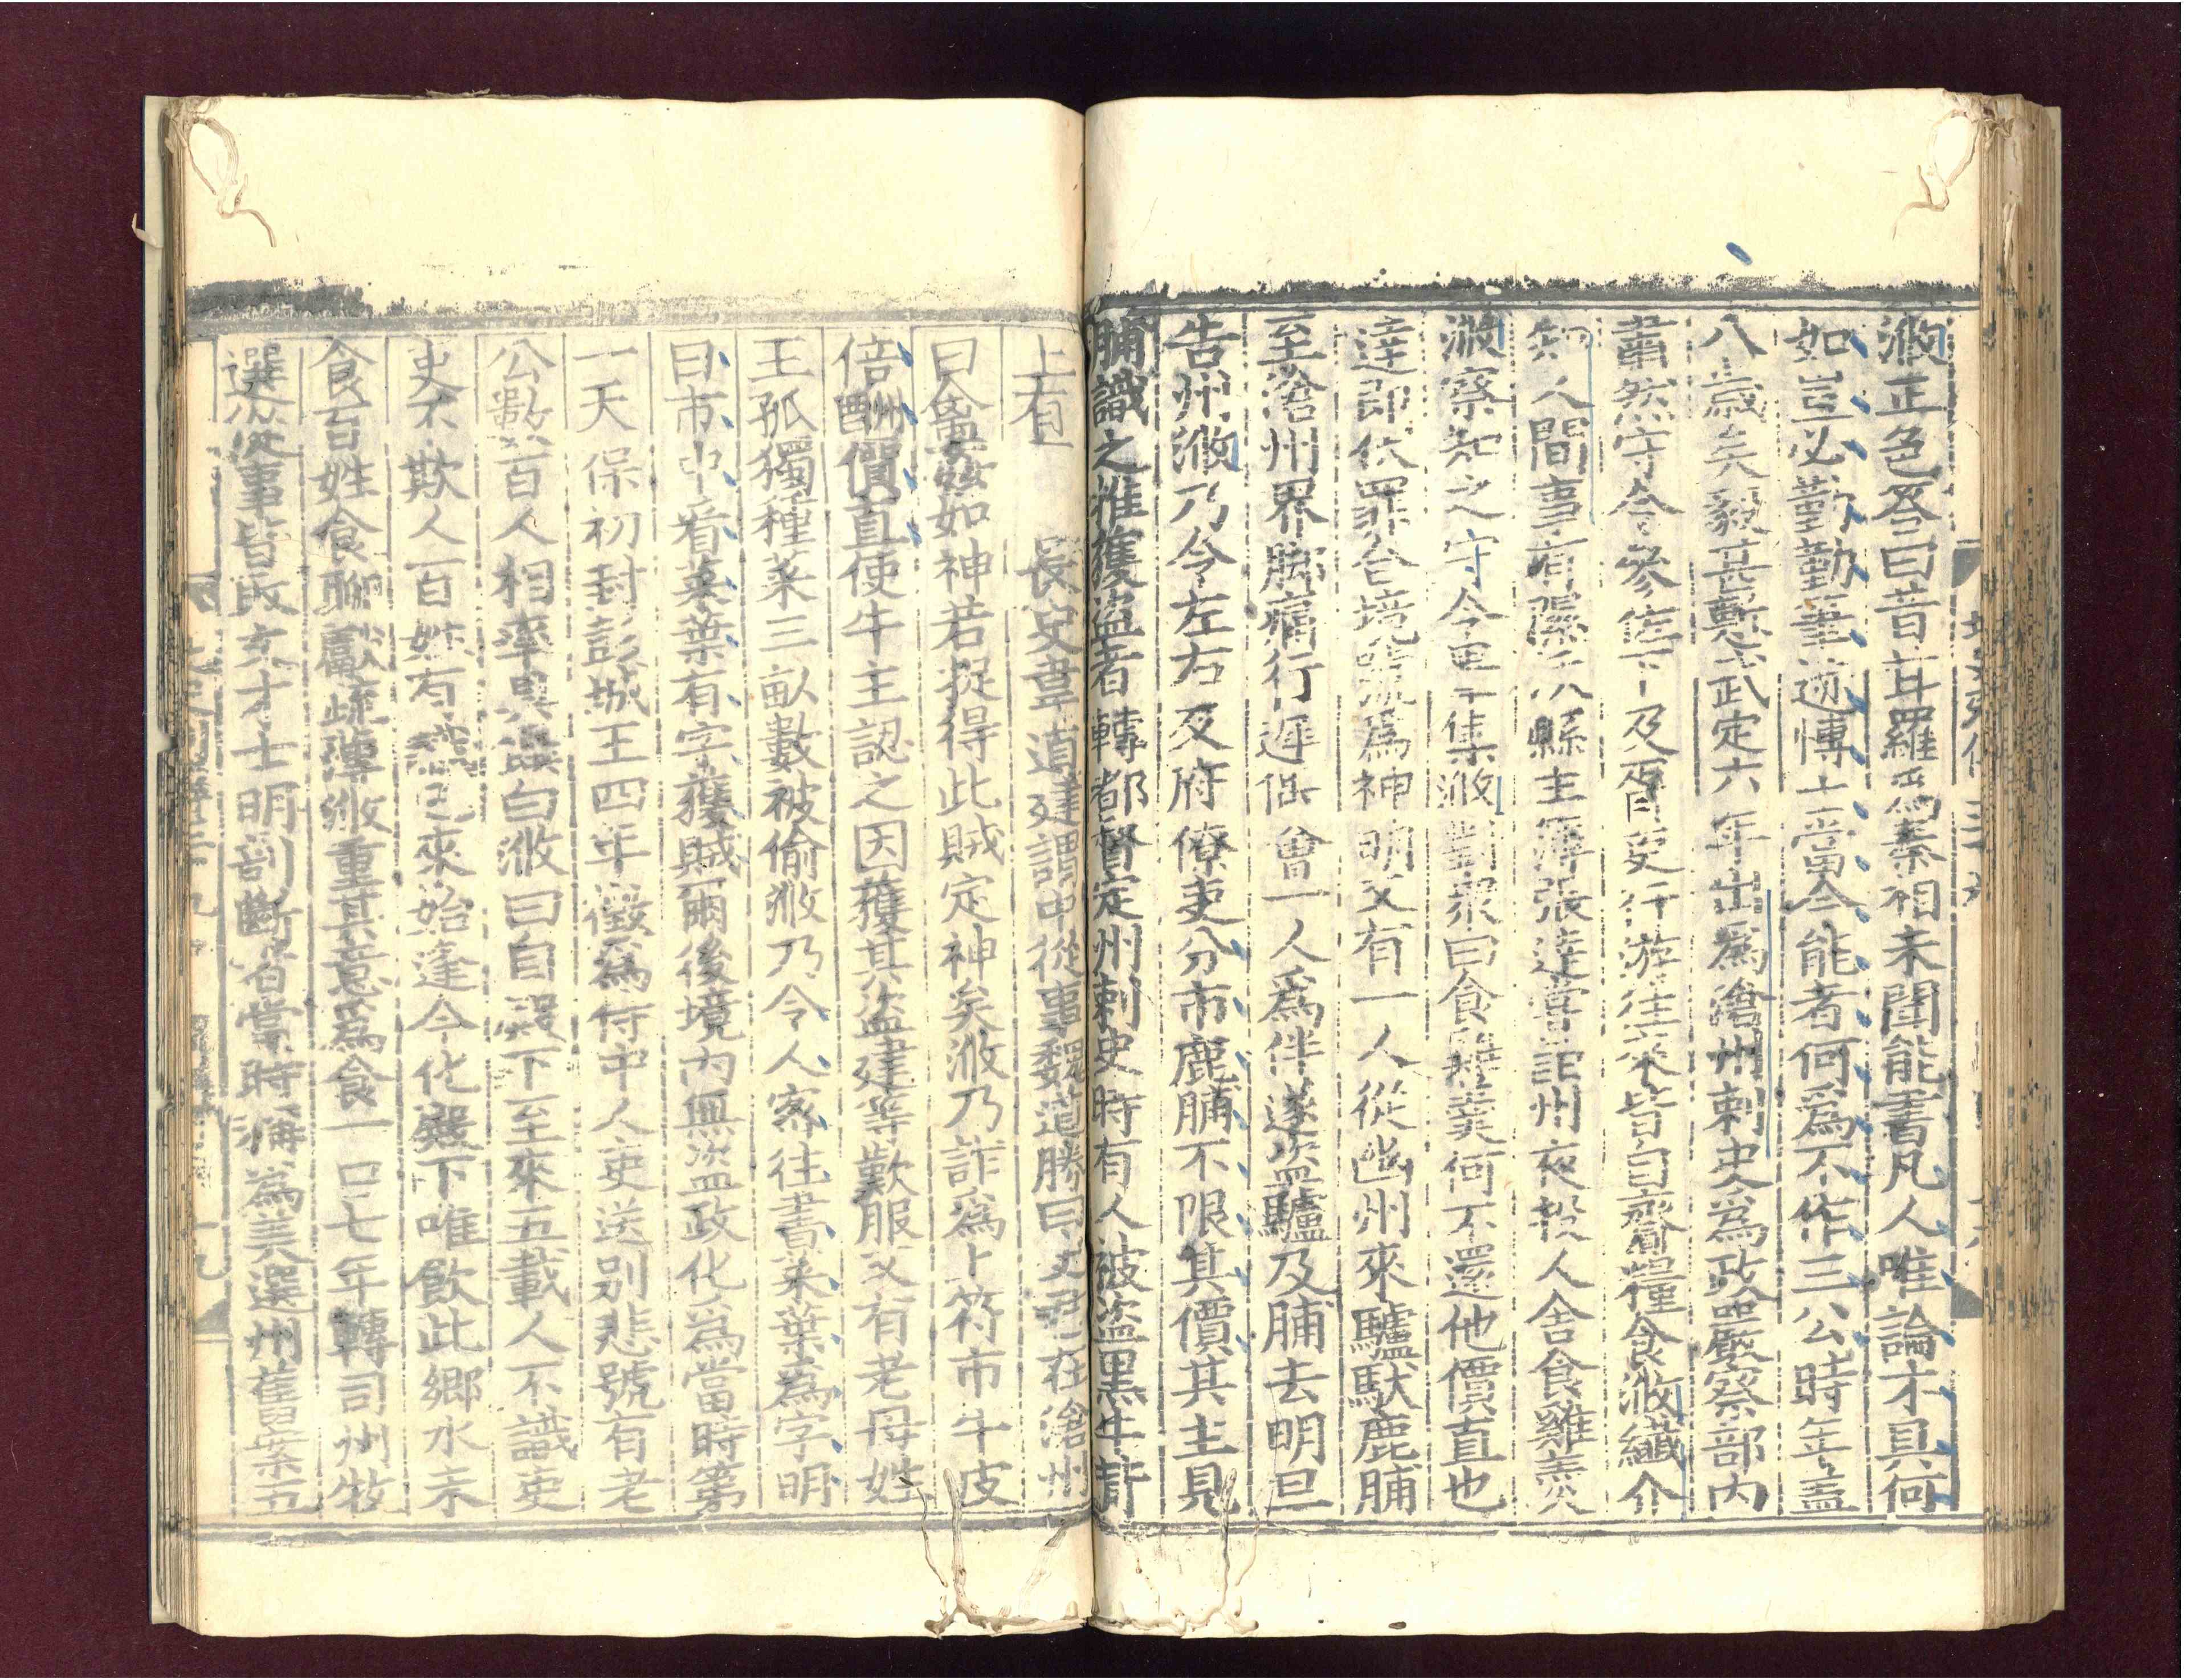 浟正色答曰昔甘羅爲秦相未聞能書凡人唯論才具何
如豈必勤勤筆迹博士當今能者何爲不作三公時年蓋
八歲矣毅甚慙武定六年出爲滄州刺史爲政嚴察部内
肅然守令參佐下及胥吏行游往來皆自齎糧食浟纎介
知人間事有隰沃縣主簿張逹嘗詣州夜投人舍食雞羮
浟察知之守令畢集浟對衆曰食雞羮何不還他價直也
逹即伏罪合境號爲神明又有一人從幽州來驢馱鹿脯
至滄州界脚痛行遲偶會一人爲伴遂盜驢及脯去明旦
告州浟乃令左右及府僚吏分市鹿脯不限其價其主見
脯識之推獲盜者轉都督定州刺史時有人被盜黑牛背
上有 長史韋道建謂中從事魏道勝曰史君在滄州
日禽姦如神若捉得此賊定神矣浟乃詐爲上符市牛皮
倍酬價直使牛主認之因獲其盜建等歎服又有老母姓
王孤獨種菜三畝數被偷浟乃令人密往書菜葉爲字明
日市中看菜葉有字獲賊爾後境内無盜政化爲當時第
一天保初封彭城王四年徵爲侍中人吏送别悲號有老
公數百人相率具饌白浟曰自殿下至來五載人不識吏
吏不欺人百姓有識已來始逢今化殿下唯飲此鄉水未
食百姓食聊獻疏薄浟重其意爲食一口七年轉司州牧
選從事皆取文才士明剖斷者當時稱爲美選州舊案五